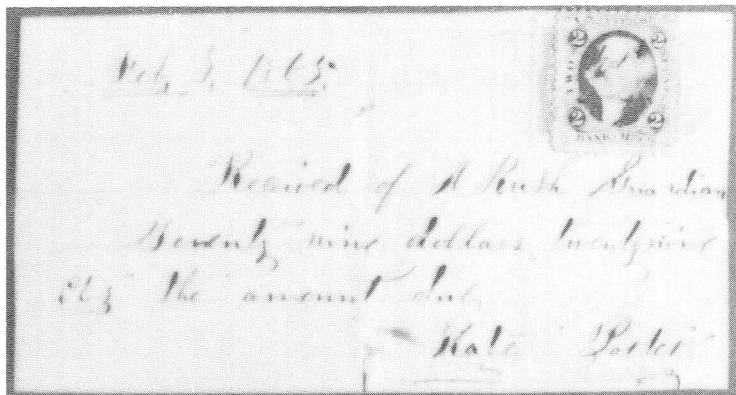 2 2
TWO
2 2
BANK
Feb 3, 1865
Received of A Rush Guardian
Seventy nine dollars twenty nine
cts the amount due
Kate Porter